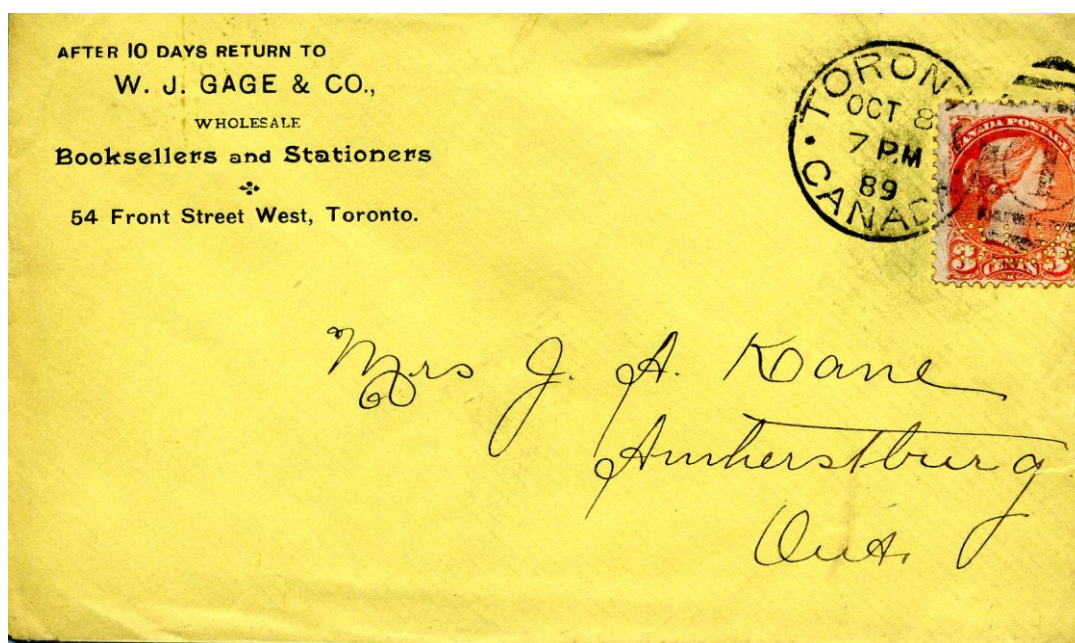 AFTER 10 DAYS RETURN TO
W. J. GAGE & CO.,
WHOLESALE
Booksellers and Stationers
54 Front Street West, Toronto.
TORON
OCT 8
7 P.M
89
CANADA
CANADA POSTAGE
1
3 CENTS 3
Mrs J. A. Kane
Amherstburg
Ont.